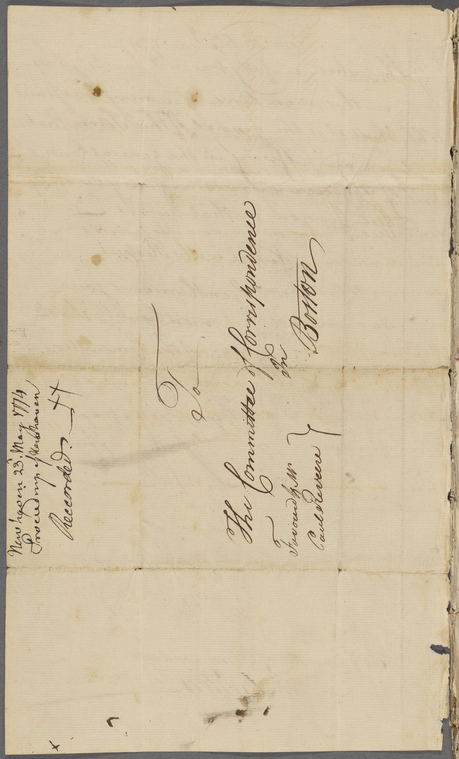 Newhaven 23d. May 1774
Proceedings of Newhaven
Recorded.
To
The Committee of Correspondence
In
Boston
Favourd ℔ Mr
Paul Revere